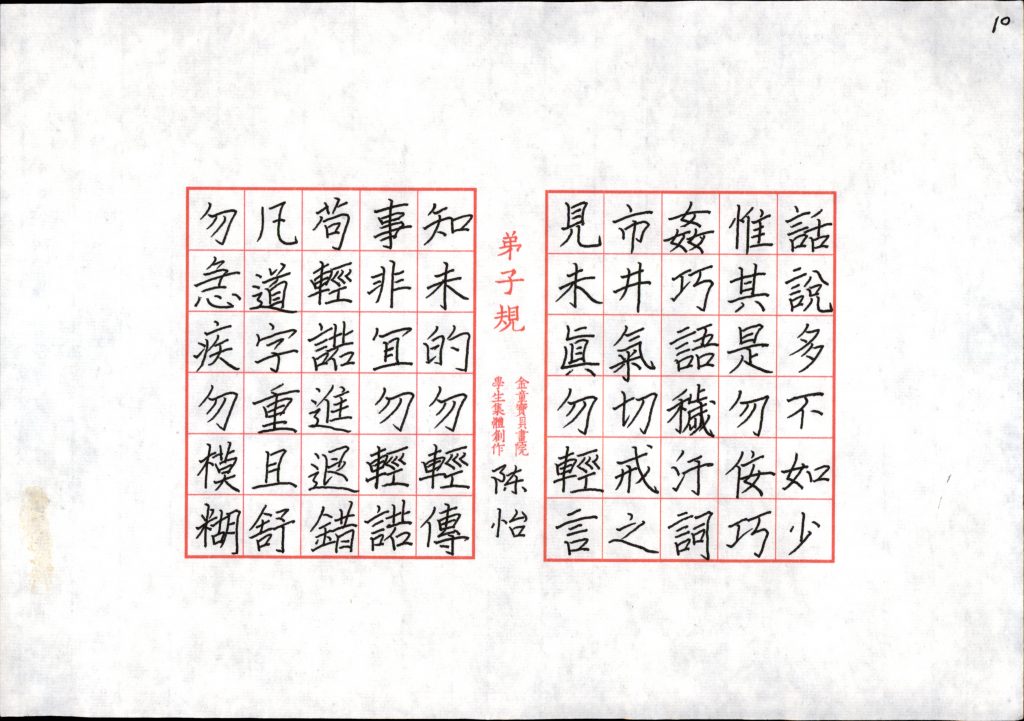 10
話說多不如少
惟其是勿佞巧
姦巧語穢汙詞
市井氣切戒之
見未眞勿輕言
弟子規
金童寶貝畫院
學生集體創作
陈怡
知未的勿輕傳
事非宜勿輕諾
茍輕諾進退錯
凡道字重且舒
勿急疾勿模糊